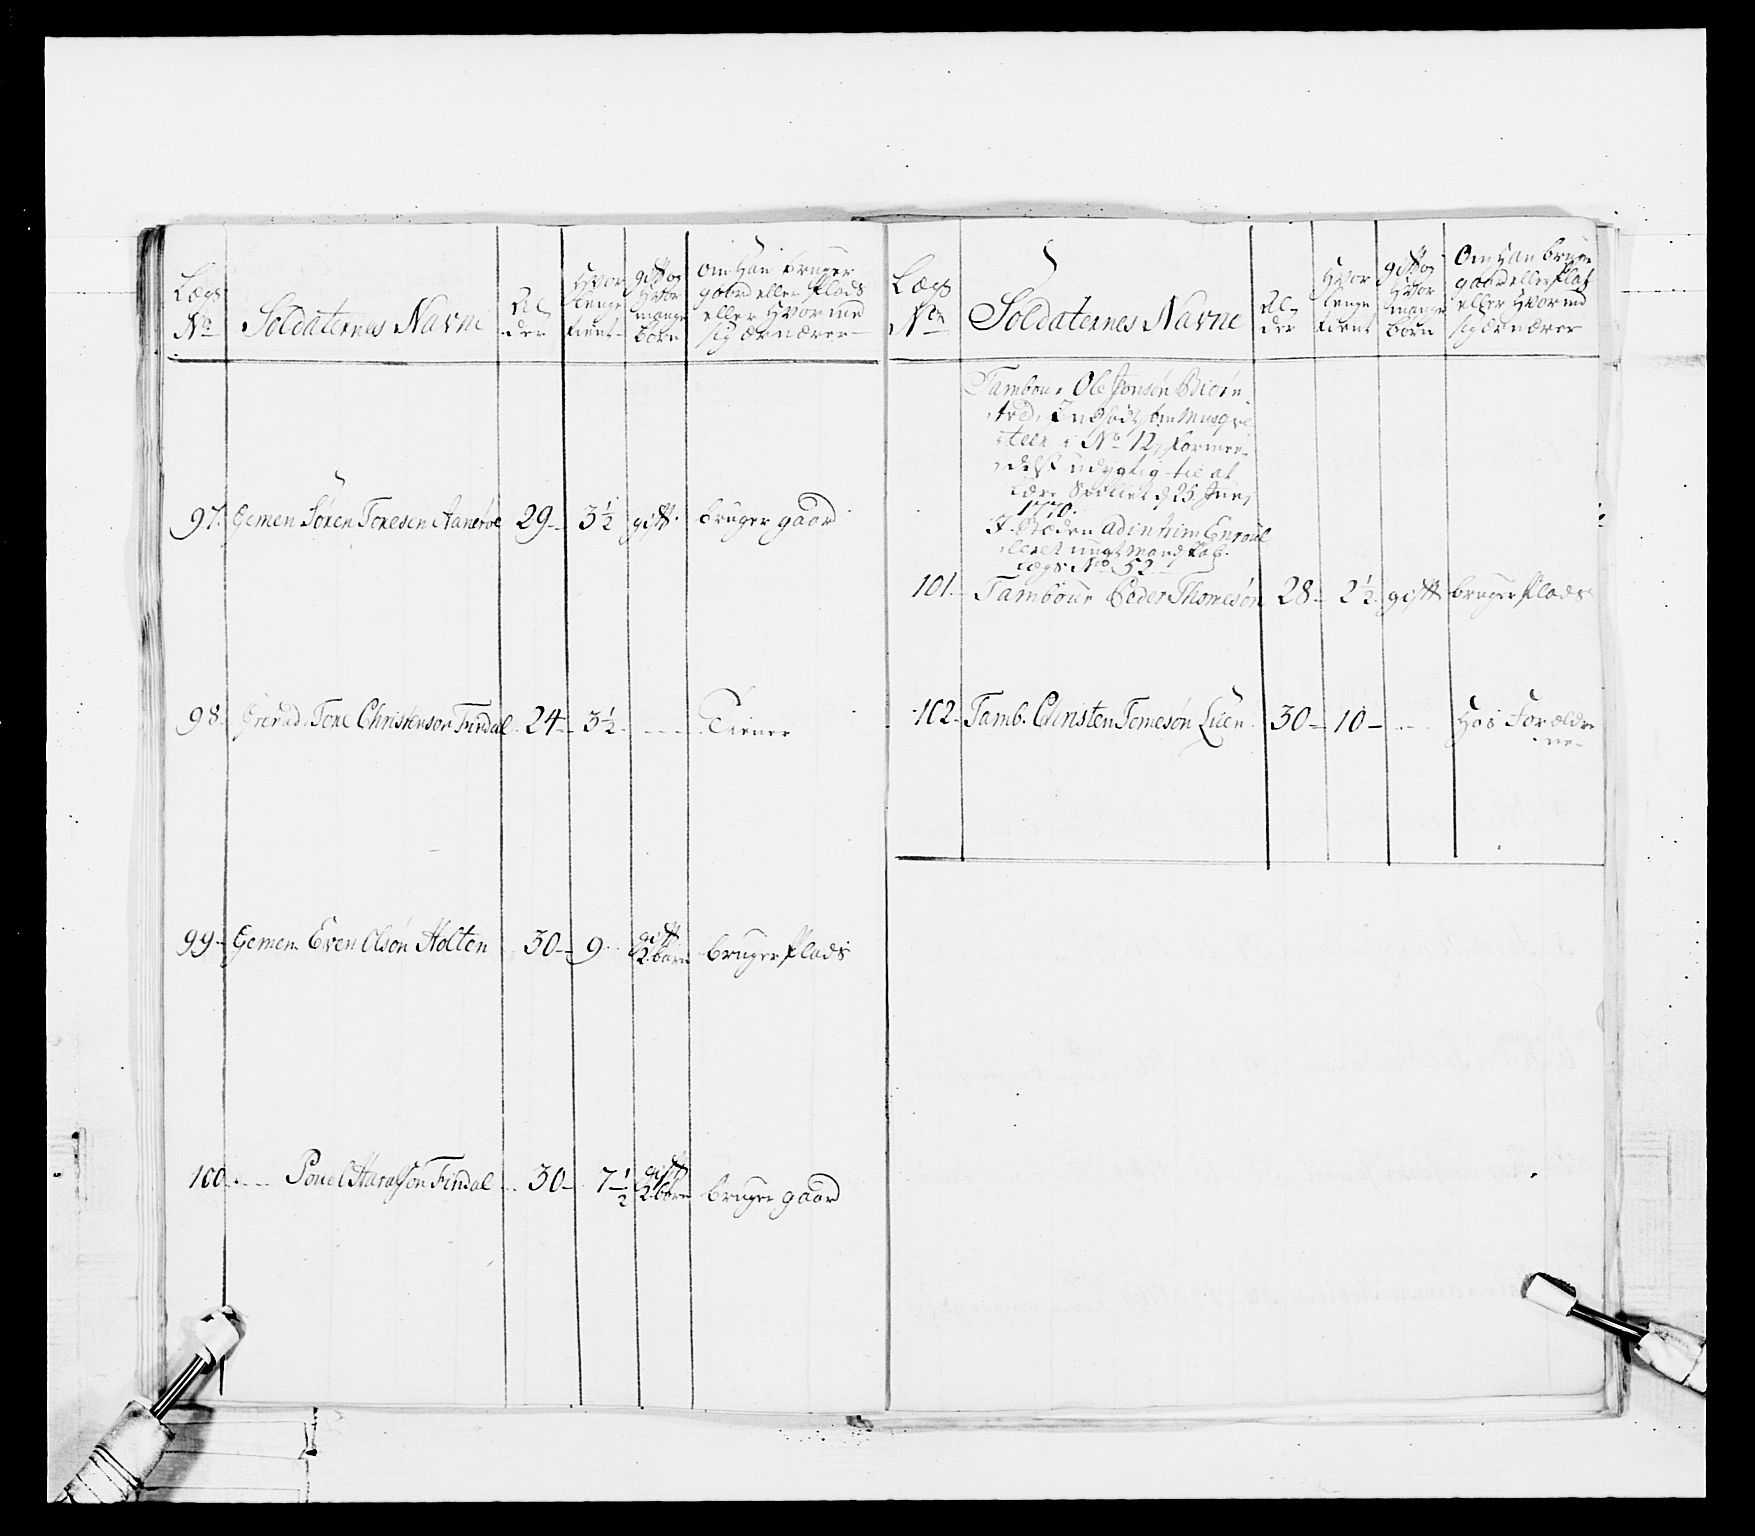 Lægs No
Soldaternes Navne
Al-
der
Hvor
lenge
tient
gift og
Hvor
mange
börn
om Han bruger
gaard eller Plads
eller Hvormed
sig ernærer
97. Gemen Sören Toresen 29- 3 1/2 gift. bruger gaard
98. Tore Christensen Findal 24- 3 1/2 - - - Tiener
99. Gemen Even Olsön Holten 30- 9 gift 2 börn bruger Plads
100. - - - Pouel Haralsön Findal 30- 7 1/2 gift 2 börn bruger gaard
Lægs No
Soldaternes Navne
Al-
der
Hvor
lenge
tient
gift og
Hvor
mange
börn
Om Han bruger
gaard eller Plads
eller Hvormed
sig ernærer
Tambour Ole Jonsön Biörn
No 12, formee-
delst udygtig til at
lære Spillet d 25 Juni
1770.
I Stæden ad intrim Enroul
leret ungt Mandskab.
Lægs No 52
101. Tambour Peder Thomesön 28- 2 1/2 gift bruger Plads
102. Tamb. Christen Tomesön Lien 30- 10- - - - Hos Forældre
ne-